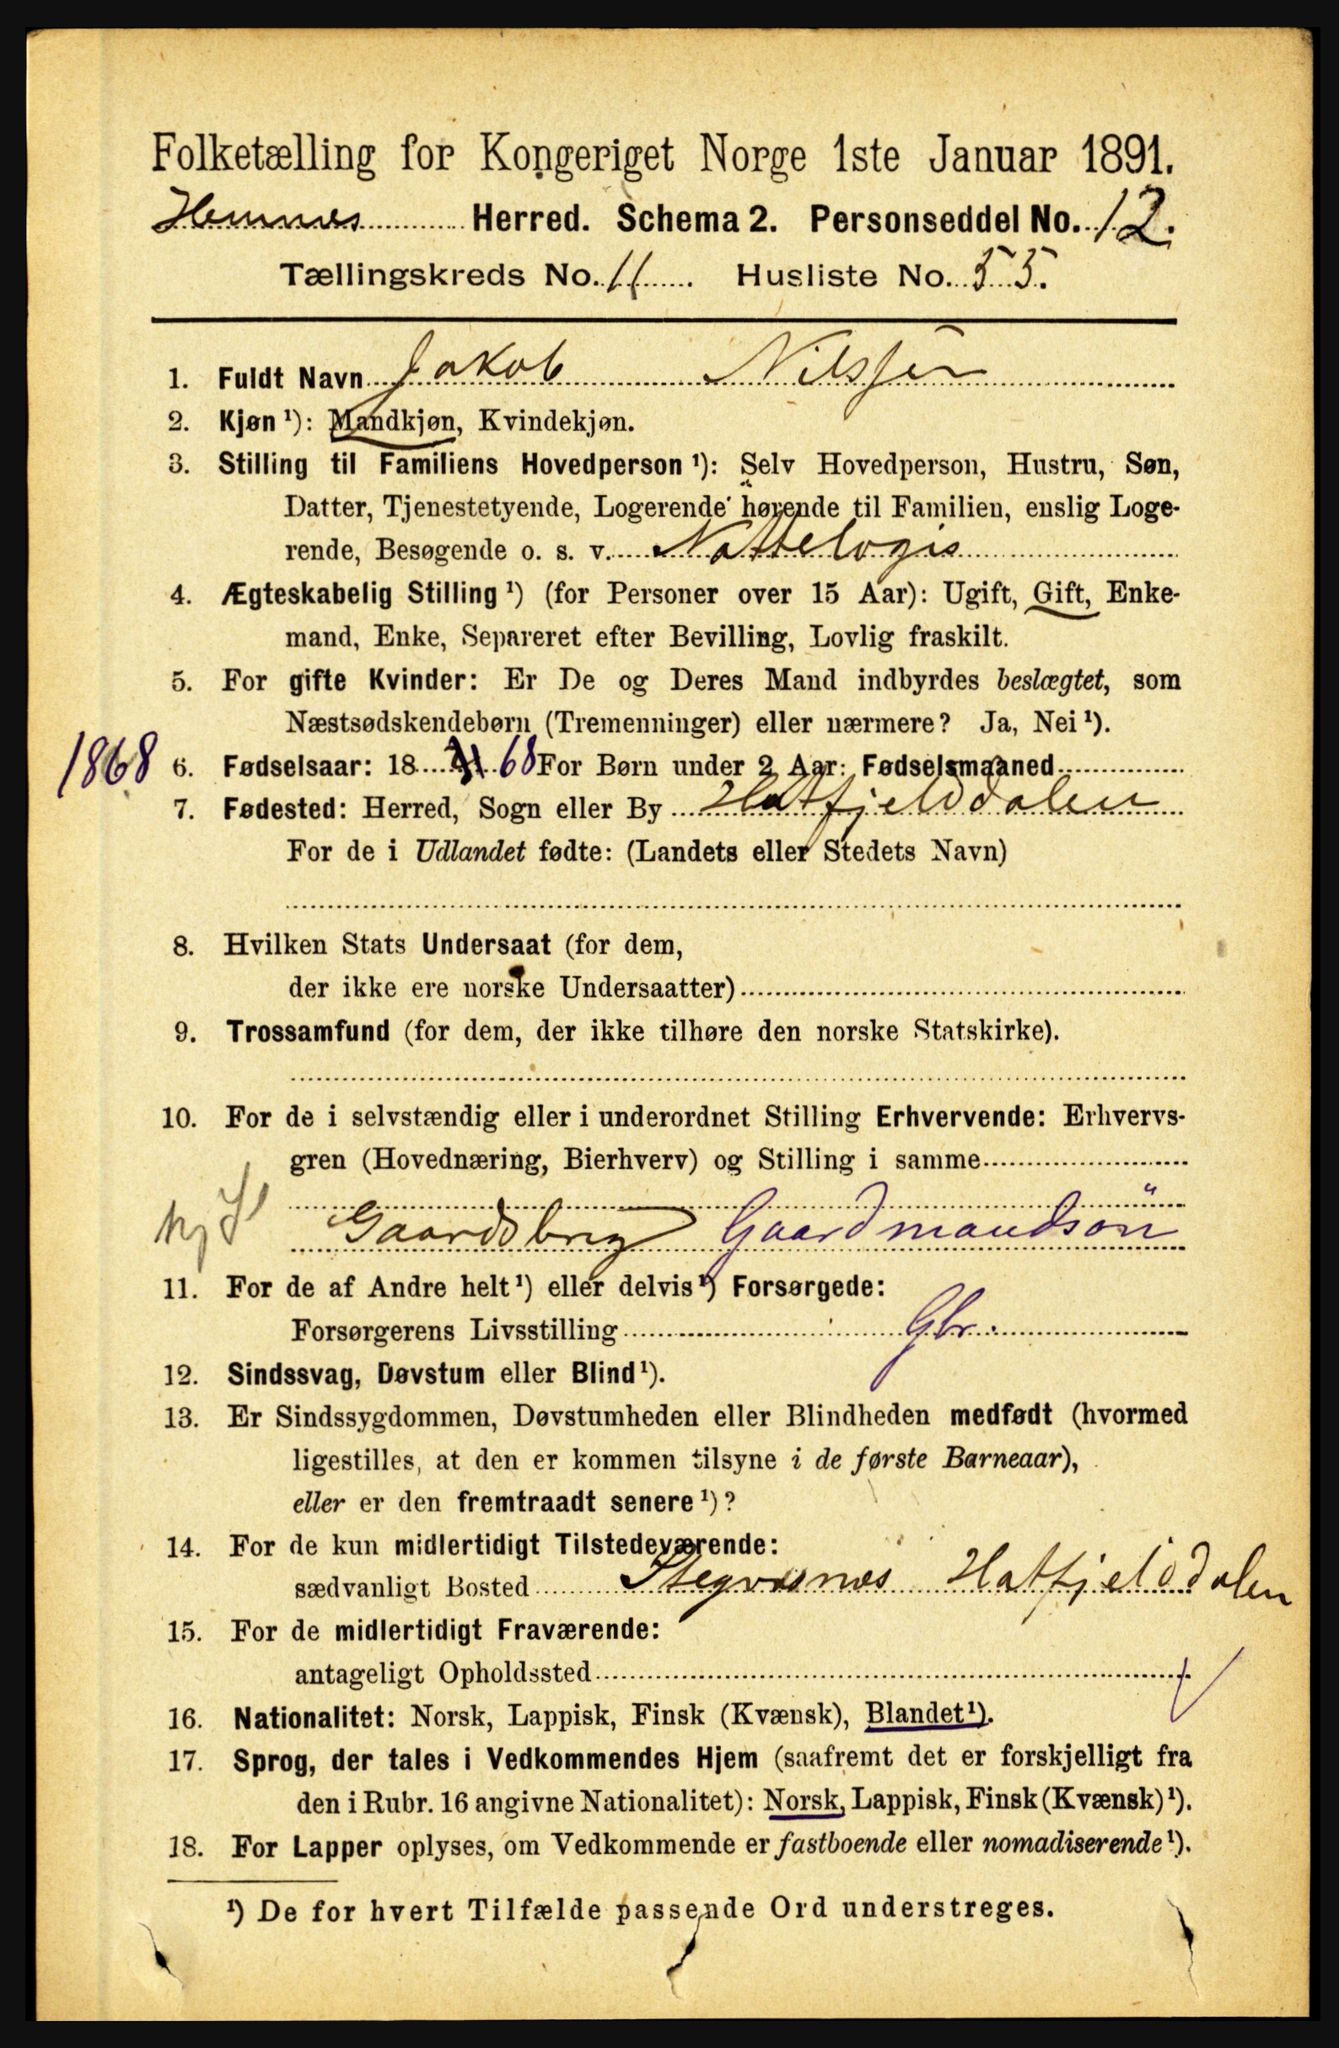 Folketælling for Kongeriget Norge 1ste Januar 1891.
Hemnes Herred. Schema 2. Personseddel No. 12.
Tællingskreds No. 11 Husliste No. 55.
1. Fuldt Navn Jakob Nilssen
2. Kjøn ¹): Mandkjøn, Kvindekjøn.
3. Stilling til Familiens Hovedperson ¹): Selv Hovedperson, Hustru, Søn,
Datter, Tjenestetyende, Logerende hørende til Familien, enslig Loge-
rende, Besøgende o. s. v. Nattelogis
4. Ægteskabelig Stilling ¹) (for Personer over 15 Aar): Ugift, Gift, Enke-
mand, Enke, Separeret efter Bevilling, Lovlig fraskilt.
5. For gifte Kvinder: Er De og Deres Mand indbyrdes beslægtet, som
Næstsødskendebørn (Tremenninger) eller nærmere? Ja, Nei ¹).
1868 6. Fødselsaar: 18 68 For Børn under 2 Aar: Fødselsmaaned
7. Fødested: Herred, Sogn eller By Hatfjelddalen
For de i Udlandet fødte: (Landets eller Stedets Navn)
8. Hvilken Stats Undersaat (for dem,
der ikke ere norske Undersaatter)
9. Trossamfund (for dem, der ikke tilhøre den norske Statskirke).
10. For de i selvstændig eller i underordnet Stilling Erhvervende: Erhvervs-
gren (Hovednæring, Bierhverv) og Stilling i samme
Gaardsbrug Gaardmandsön
11. For de af Andre helt ¹) eller delvis ¹) Forsørgede:
Forsørgerens Livsstilling Gbr.
12. Sindssvag, Døvstum eller Blind ¹).
13. Er Sindssygdommen, Døvstumheden eller Blindheden medfødt (hvormed
ligestilles, at den er kommen tilsyne i de første Barneaar),
eller er den fremtraadt senere ¹)?
14. For de kun midlertidigt Tilstedeværende:
sædvanligt Bosted Hatfjelddalen
15. For de midlertidigt Fraværende:
antageligt Opholdssted
16. Nationalitet: Norsk, Lappisk, Finsk (Kvænsk), Blandet ¹).
17. Sprog, der tales i Vedkommendes Hjem (saafremt det er forskjelligt fra
den i Rubr. 16 angivne Nationalitet): Norsk, Lappisk, Finsk (Kvænsk) ¹).
18. For Lapper oplyses, om Vedkommende er fastboende eller nomadiserende ¹).
¹) De for hvert Tilfælde passende Ord understreges.